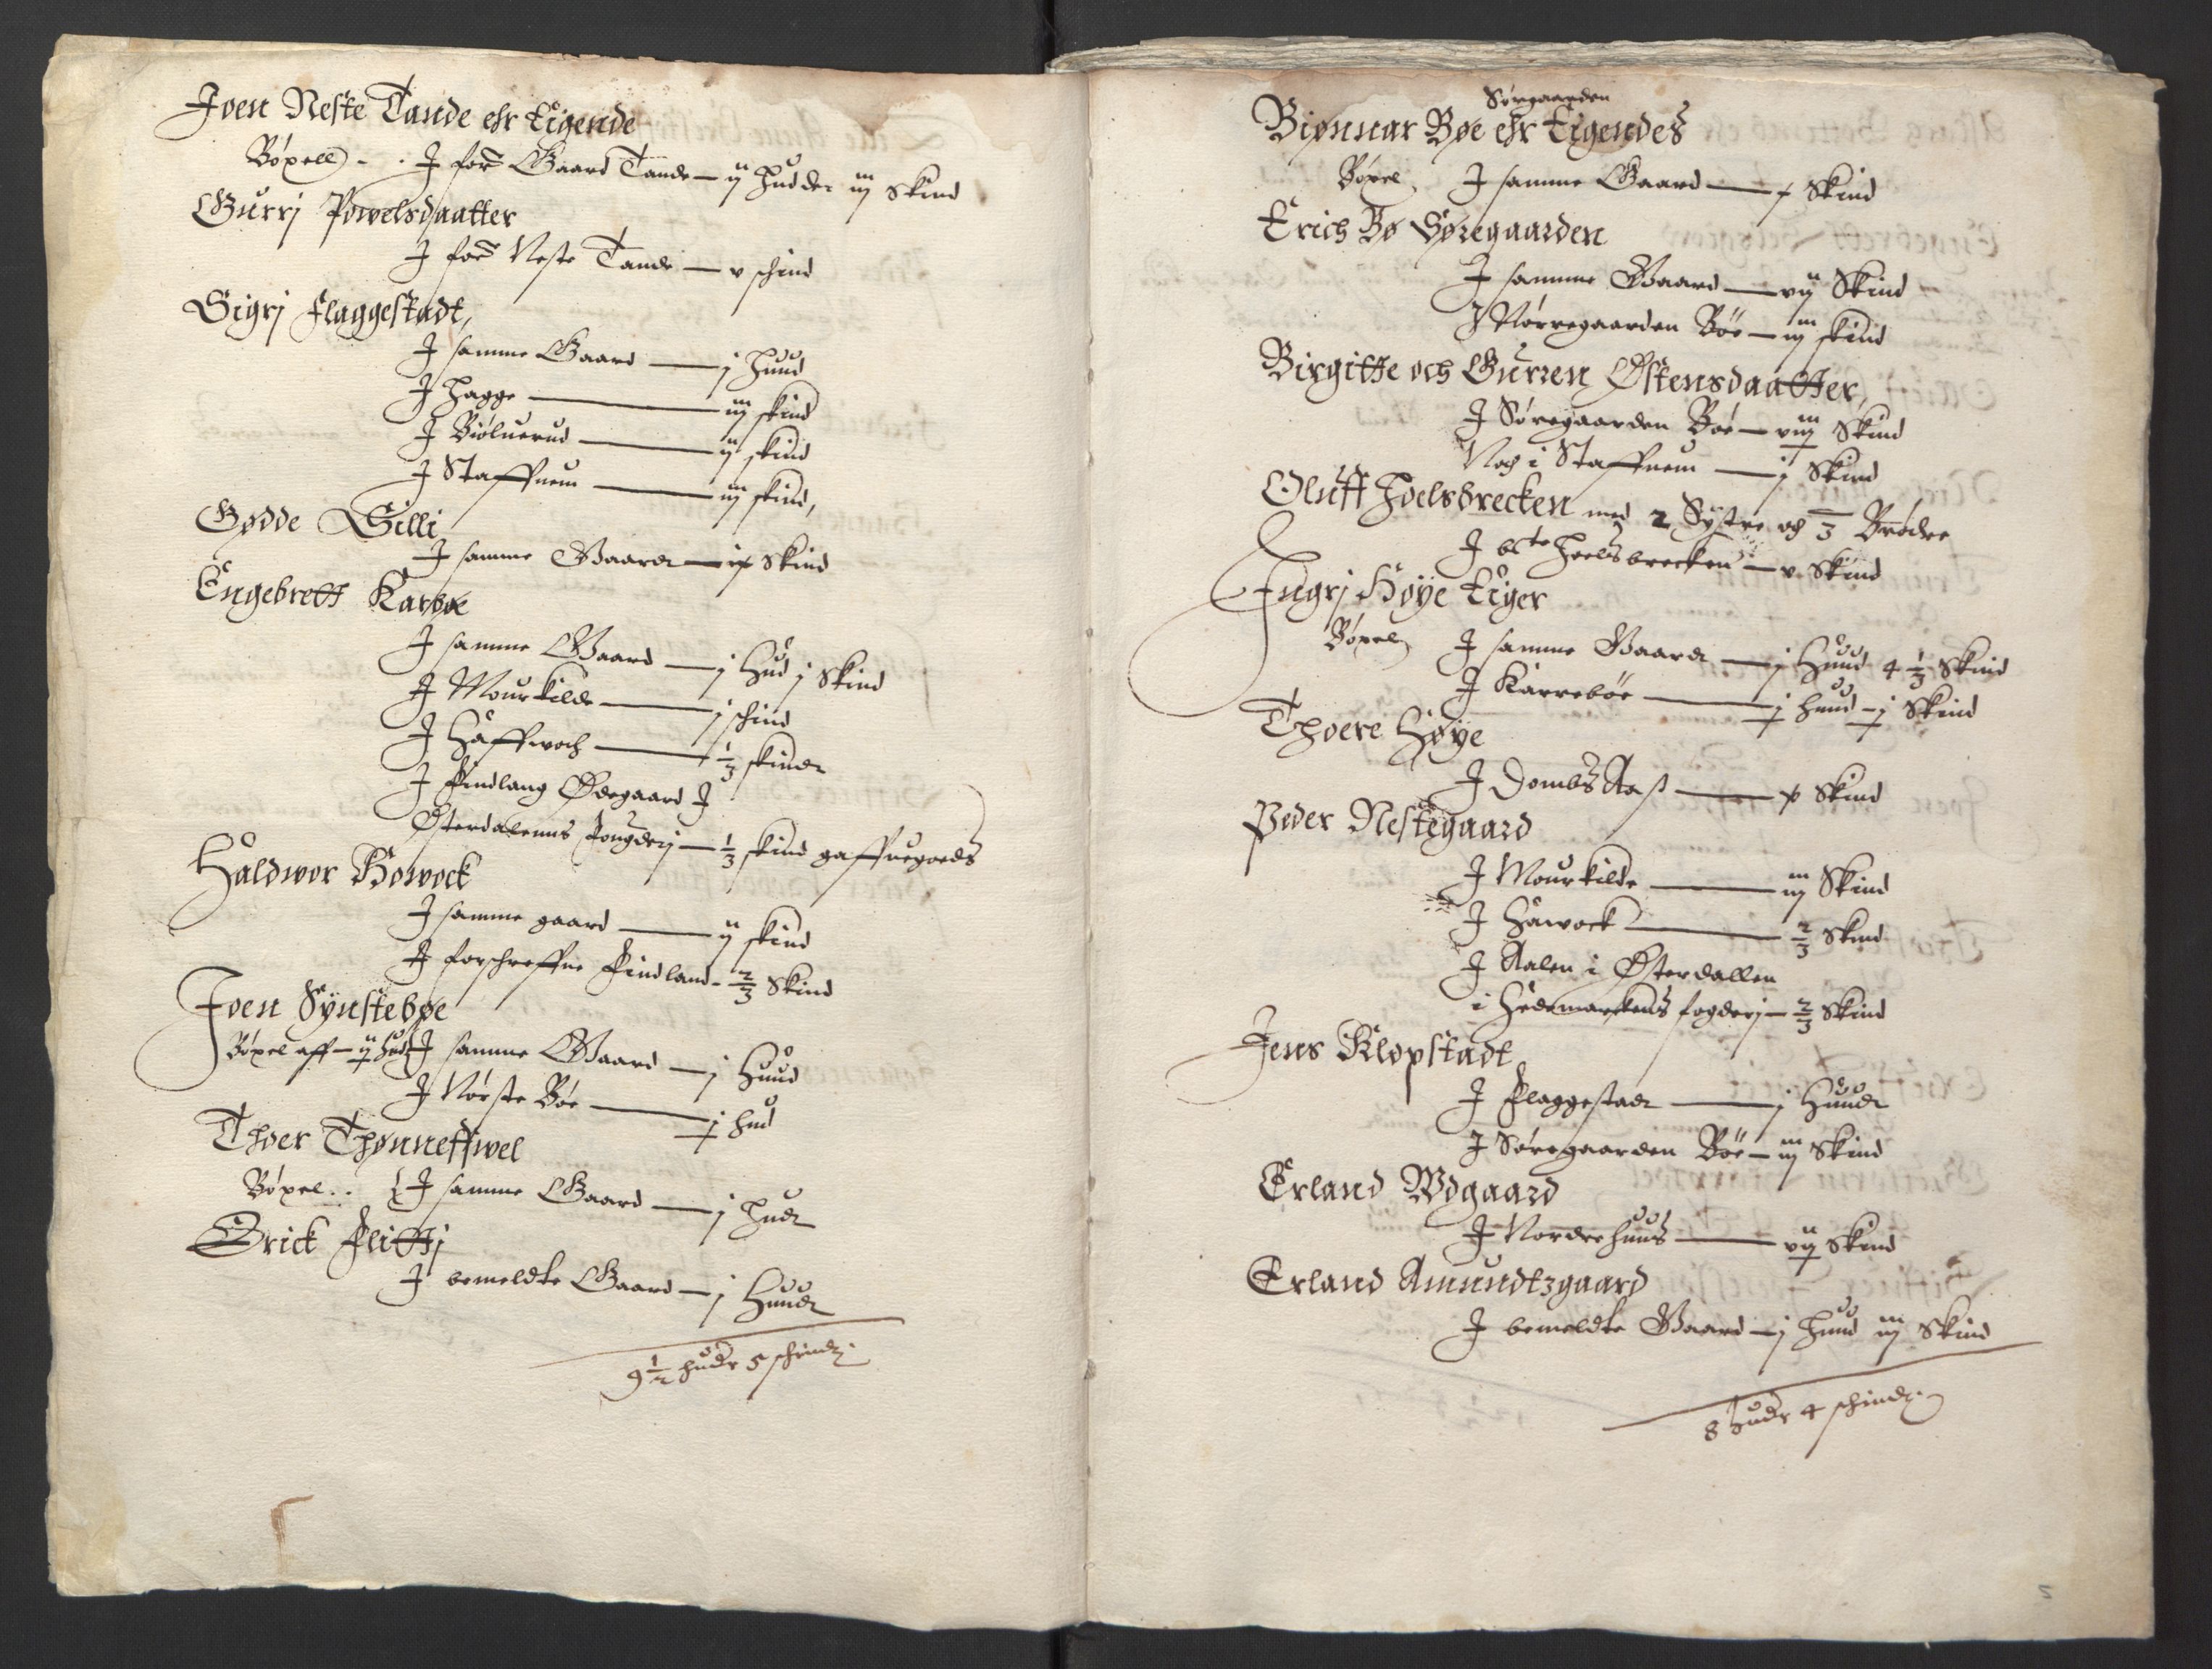 Joen Neste Tande ehr Eigende
Böxell - . J forᵉ Gaard Tande — ij hudder iiij Skind
Gurrj Powelsdaatter
J forᵉ Neste Tande — v schind
Sigrj Flaggestadt,
J samme Gaard — j huud
J Hagge — iiij skind
J Biöluerud — ij skind
J Staffnem — iiij skind,
Gødde Silli
J samme Gaardt — ix Skind
Engebrett Karbøe
J samme Gaard — j Hud j Skind
J Mourkilde — j schind
J Håffwoch — 1/3 skindt
J Findlang Ødegaard J
Østerdalenns fougderj — 1/3 skind gaffuegoeds
Haldwor Howock
J samme gaard — ij skind
J forschreffne Findland - 2/3 Skind
Joen Synstebøe
Böxel aff — ij Hud J samme Gaard — j Huud
J Nörste Böe — j hud
Thoer Thønneffwel
Böxel . . { J samme Gaard — j Hudt
Orick Flittj
J bemeldte Gaard — j Huudt
9 1/2 huder 5 schindz.
Sørgaarden
Biønnar Bøe ehr Eigendes
Böxel, J samme Gaard — x Skind
Erich Bø Søregaarden
J samme Gaard — vij Skind
J Nörregaarden Böe — iiij skind
Birgitte och Gurren Østensdaatter,
J Söregaarden Böe — viiij Skind
Noch i Staffnem — j Skind
Oluff Hoelsbrecken med 2 Systre och 3 Brødre
J bete Hoelsbrecken — v Skind
Jngrj Høye Eiger
Böxel, J samme Gaardt — j Huud 4 1/3 Skind
J Karreböe — j huud — j Skind
Thoere Høye
J Dombs Aaß — x Skind
Peder Nestegaard
J Mourkilde — iiij Skind
J Håwock — 2/3 Skind
J Aalen i Østerdallen
i Hedemarkens fogderj — 2/3 Skind
Jens Klopstadt
J Flaggestadt — j Huudt
J Söregaarden Böe — iiij Skind
Erland Wdgaard
J Norderhuus — vij Skind
Erland Amundtzgaard
J bemeldte Gaard — j huud iiij Skind
8 huder 4 schindz.
5